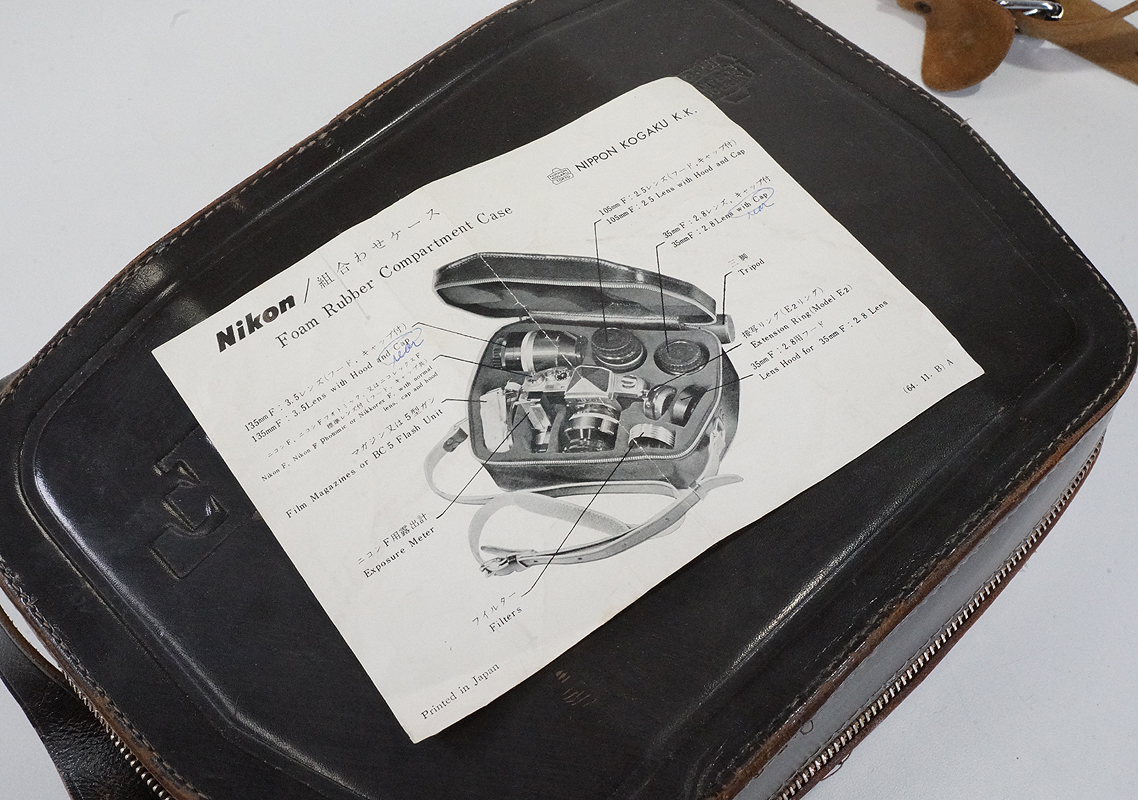 NIPPON KOGAKU K.K.
Nikon / 組合わせケース
Foam Rubber Compartment Case
105mm F：2.5レンズ(フード、キャップ付)
105mm F：2.5 Lens with Hood and Cap
35mm F：2.8レンズ、キャップ付
35mm F：2.8 Lens with Cap
rear
三脚
Tripod
接写リング(E2リング)
Extension Ring (Model E2)
35mm F：2.8用フード
Lens Hood for 35mm F：2.8 Lens
(64. 11. B) A
135mm F：3.5レンズ(フード、キャップ付)
135mm F：3.5 Lens with Hood and Cap
rear
ニコンF、ニコンFフォトミック、又はニコレックスF
標準レンズ付(フード、キャップ共)
Nikon F, Nikon F Photomic or Nikkorex F, with normal
lens, cap and hood
マガジン又は5型ガン
Film Magazines or BC 5 Flash Unit
ニコンF用露出計
Exposure Meter
フイルター
Filters
Printed in Japan
F